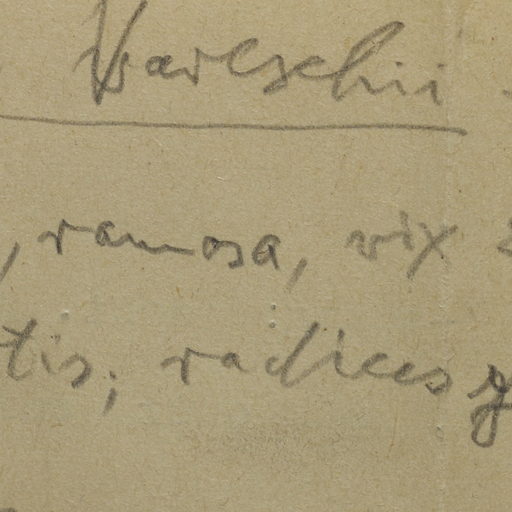 , ramosa, vix
tis; radices